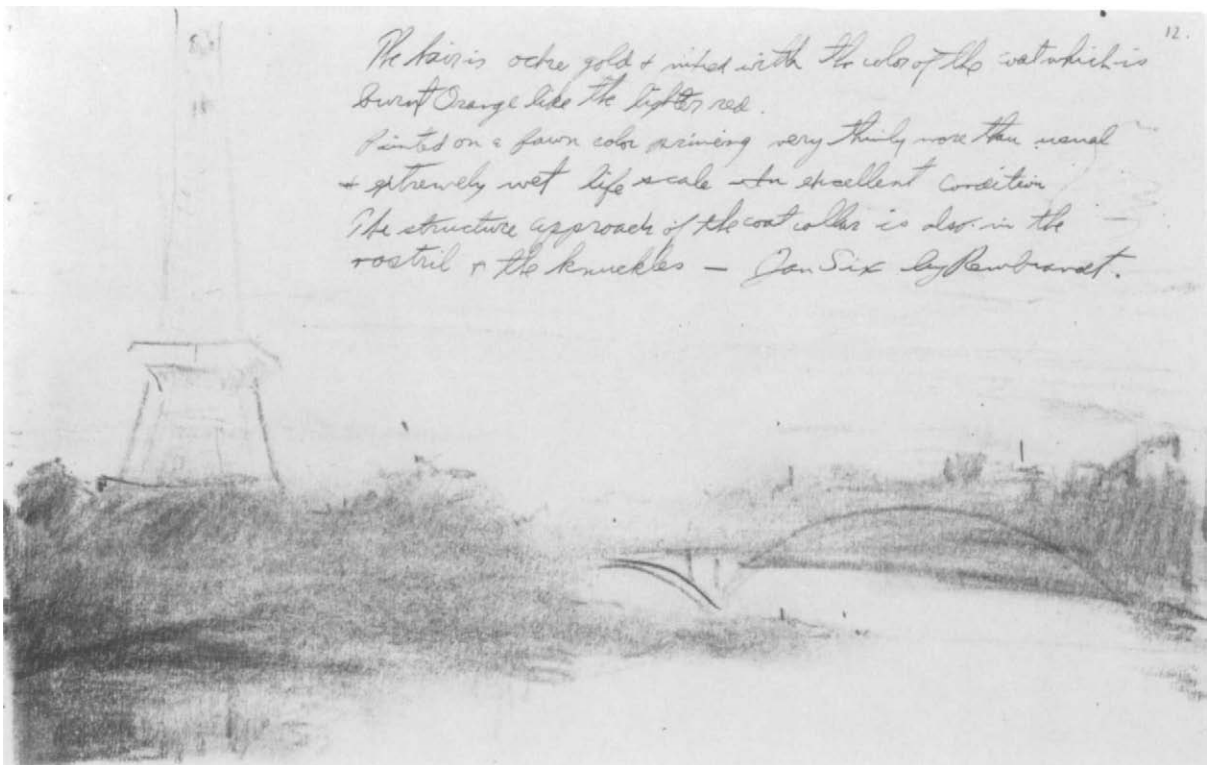 12.
The hair is ochre gold & mixed with the color of the coat which is
burnt Orange like the lighter red.
Painted on a fawn color priming very thinly more than usual
& extremely wet life scale – In excellent condition
The structure approach of the coat collar is also in the
nostril & the knuckles – Jan Six by Rembrandt.